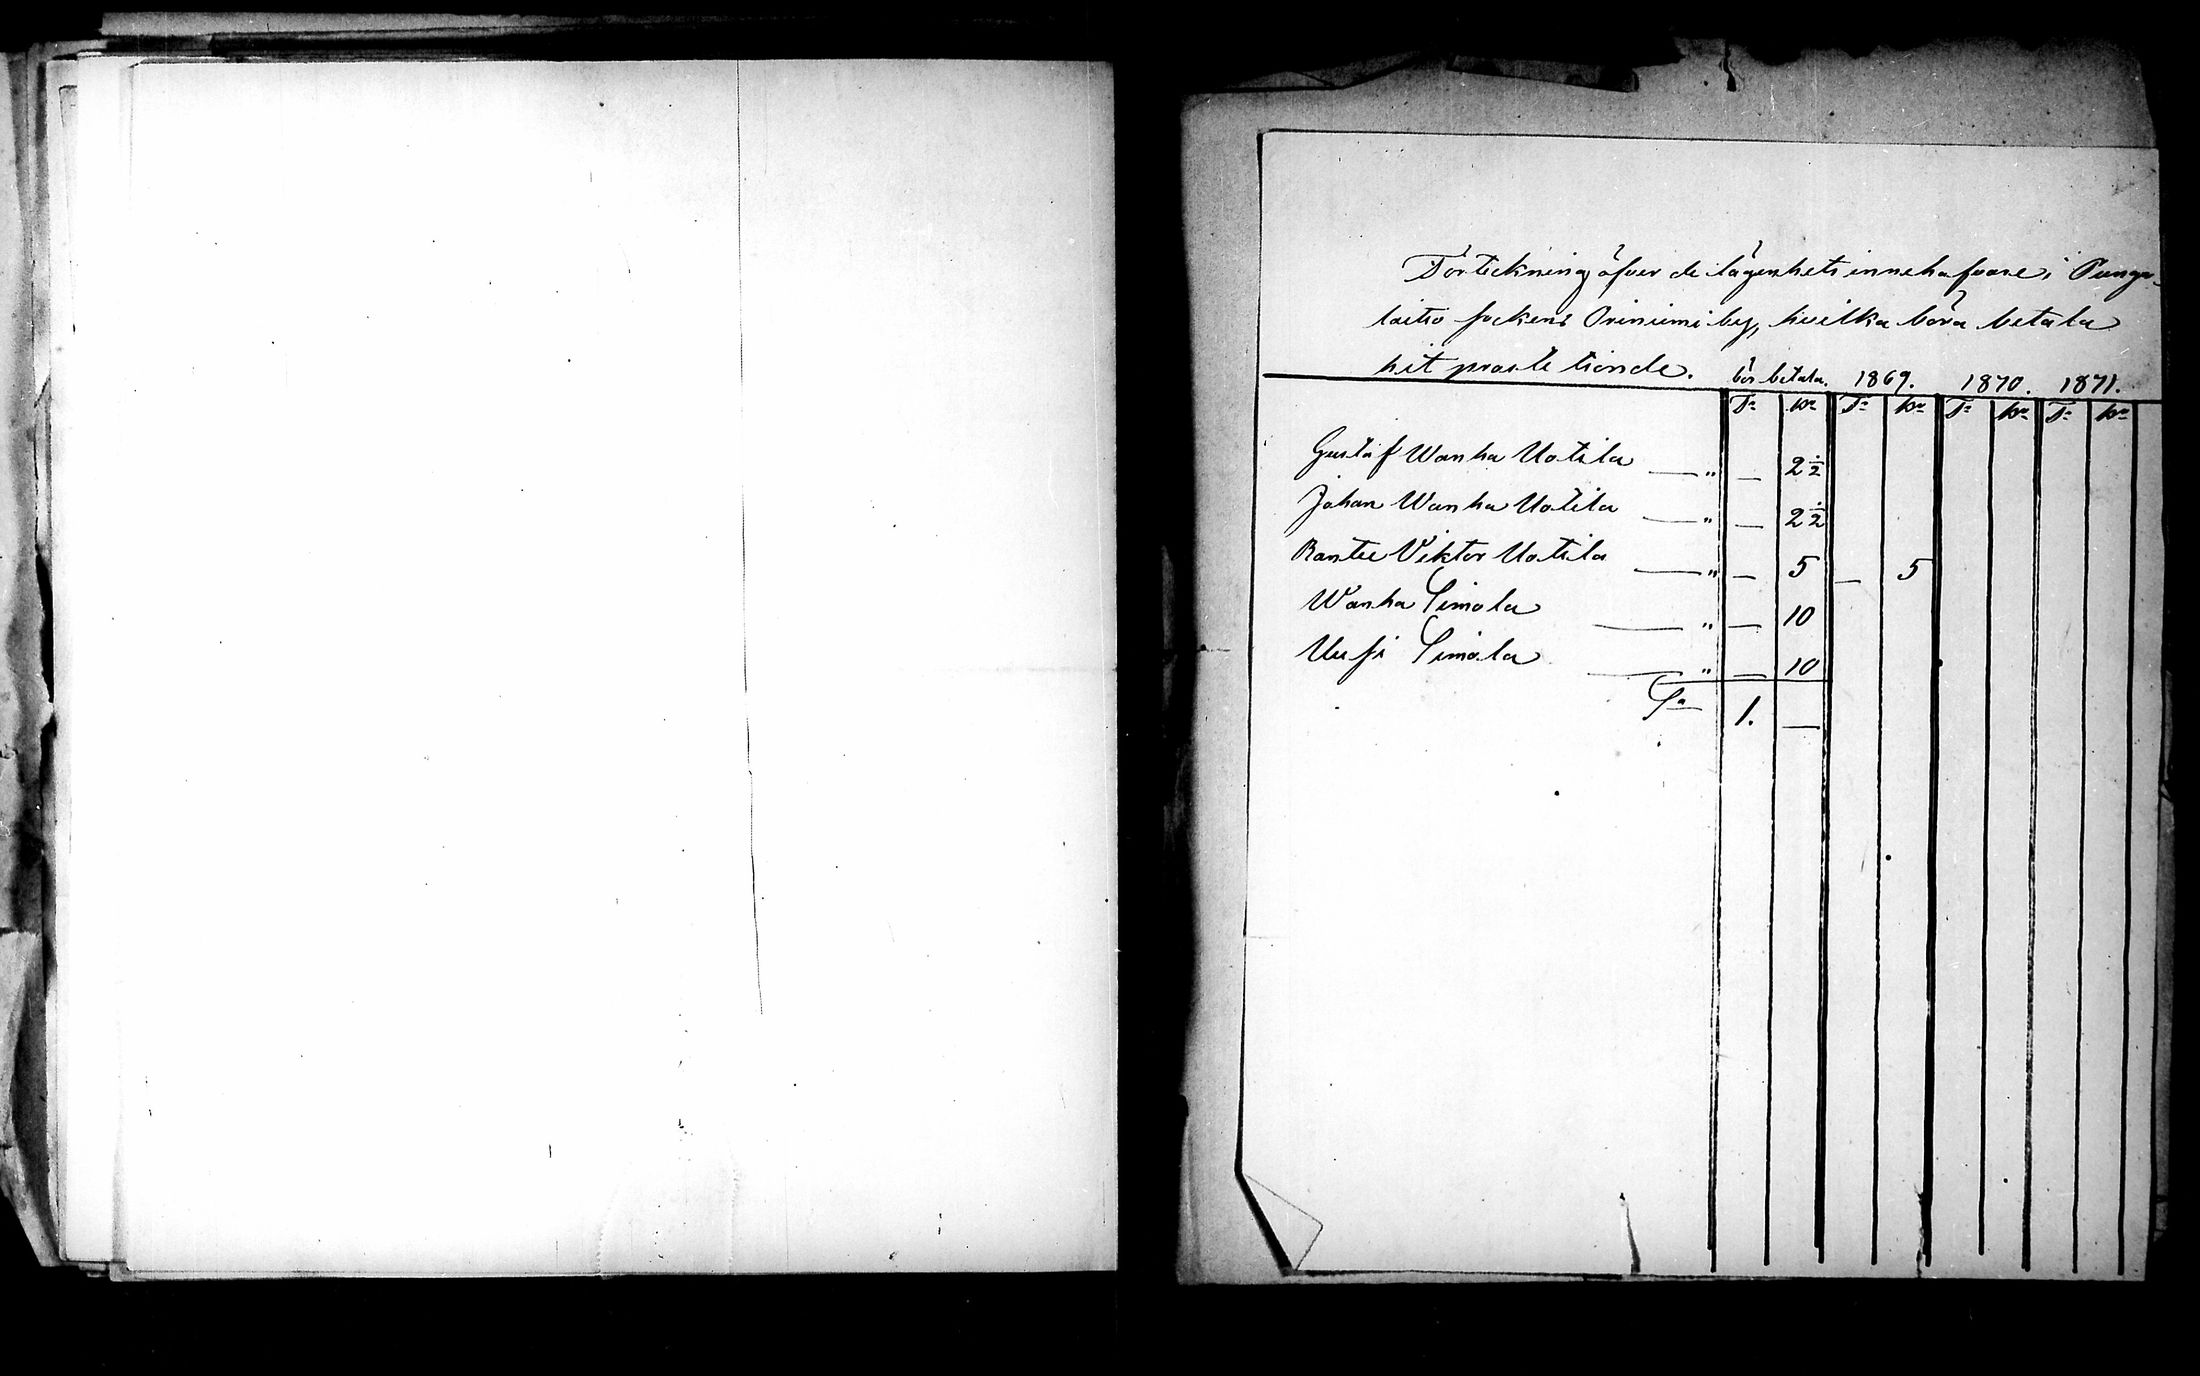 Förteckning öfver de lägenhets innehafvare i Punga-
laitio sockens Oriniemi by, hvilka böra betala
hit prosten tionde. bör betala. 1869. 1870. 1871.
Tr kpr Tr kpr Tr kpr Tr kpr
Gustaf Wanha Uotila — " — 2 1/2
Johan Wanha Uotila — " — 2 1/2
Rantee Viktor Uotila — " — 5 — 5
Wanha Simola — " — 10
Uusi Simola — " — 10
Sa 1. —